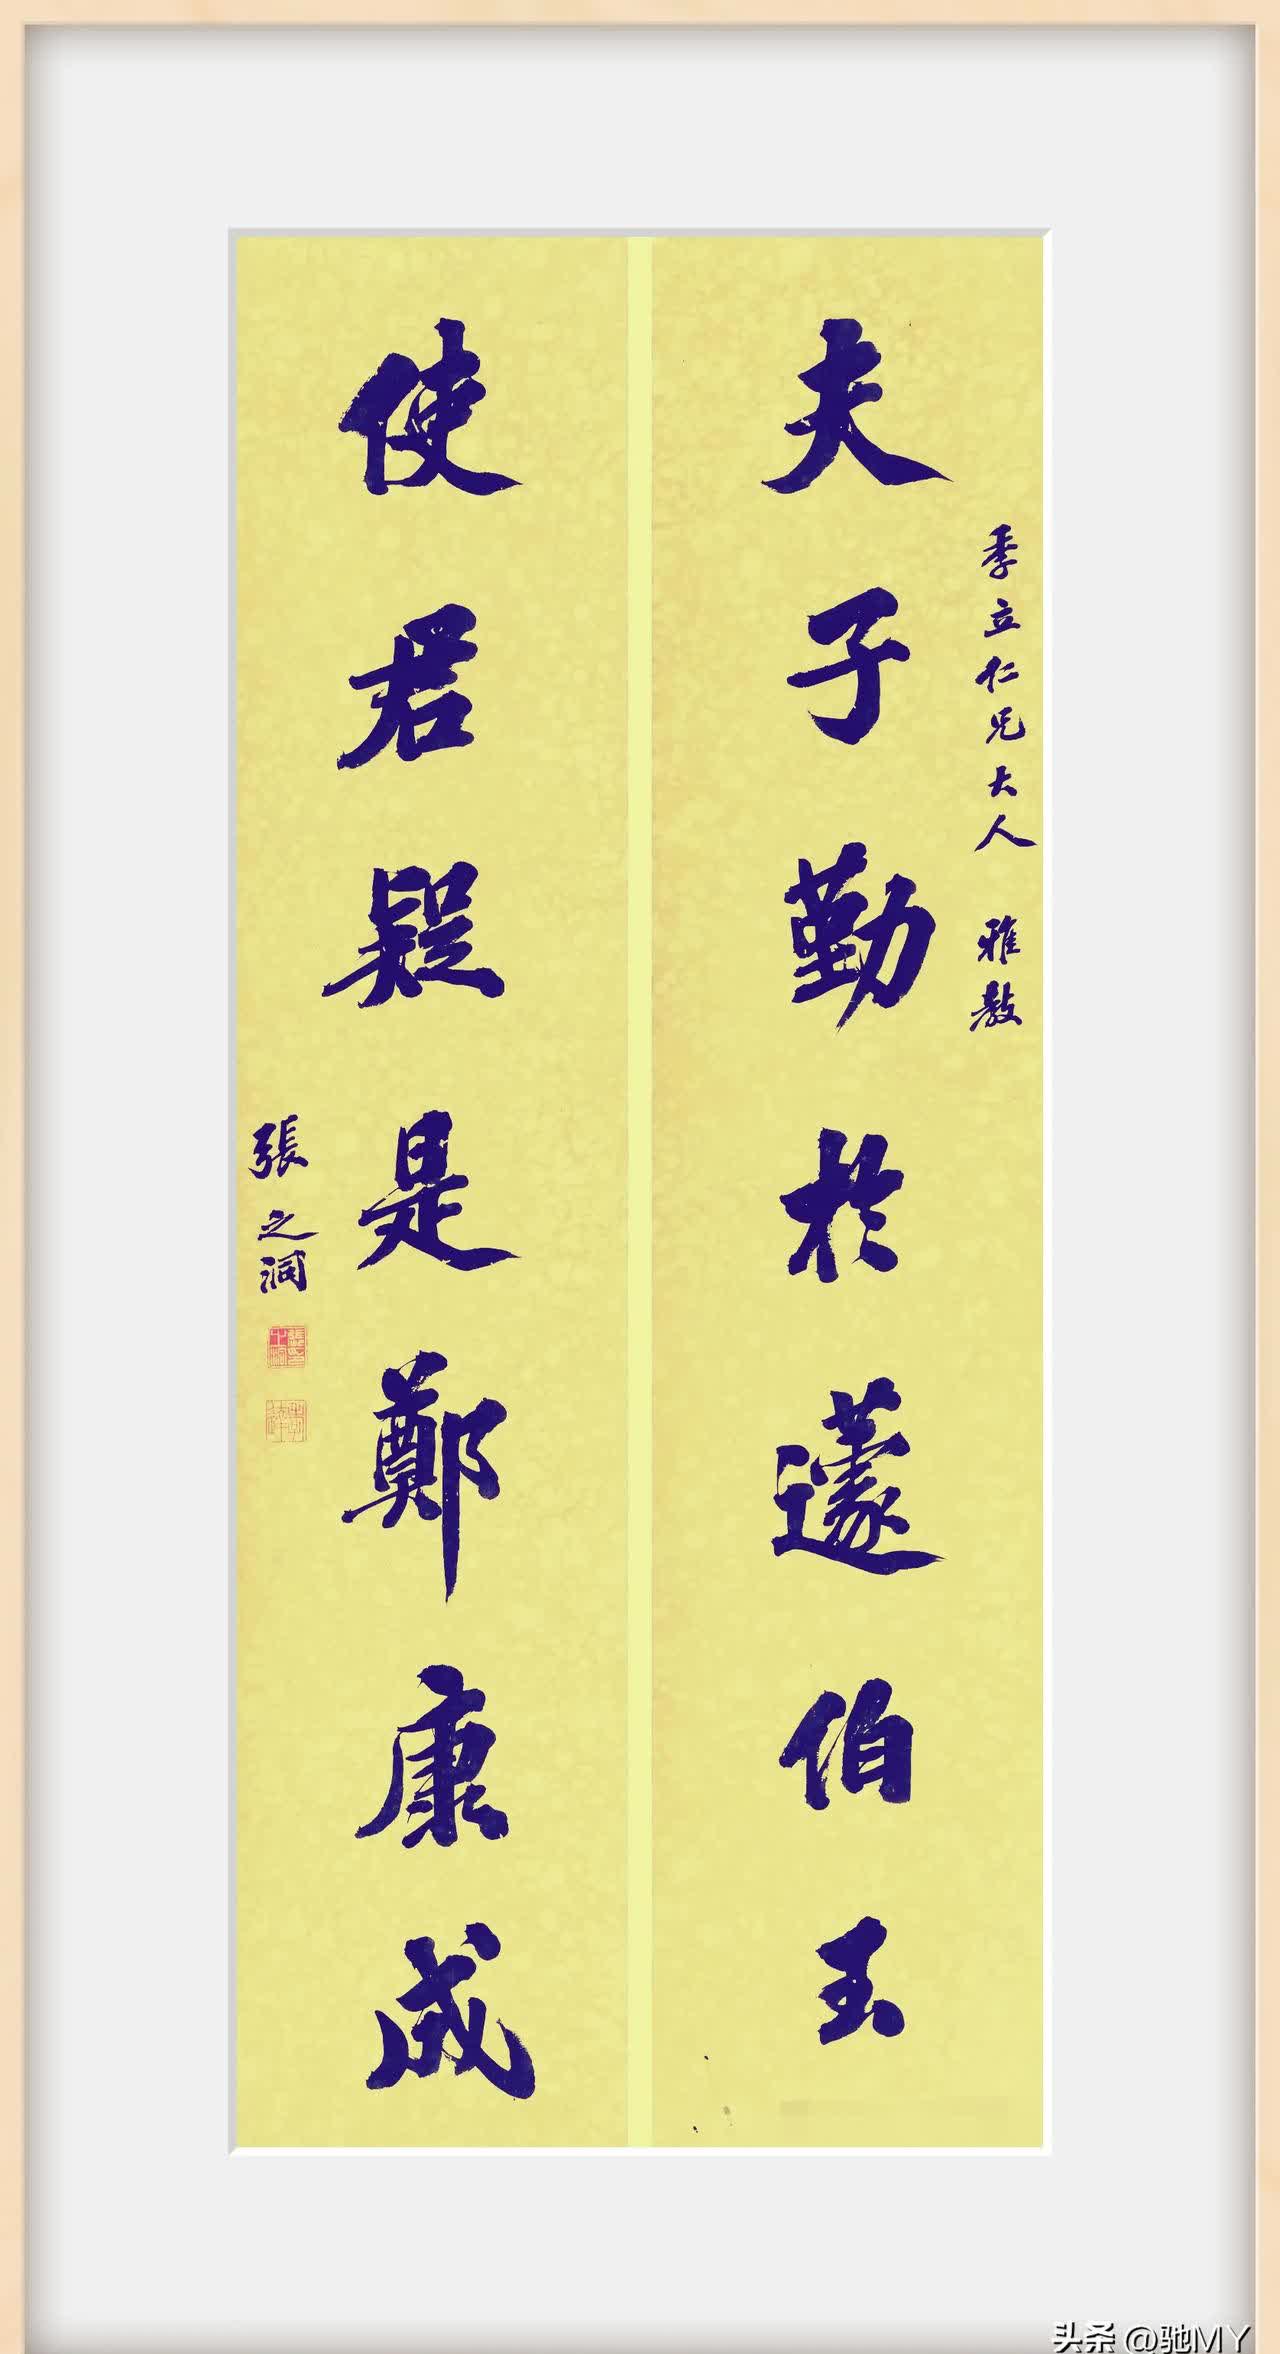 季立仁兄大人 雅教
夫子勤於蘧伯玉
使君疑是鄭康成
張之洞
头条 @驰MY